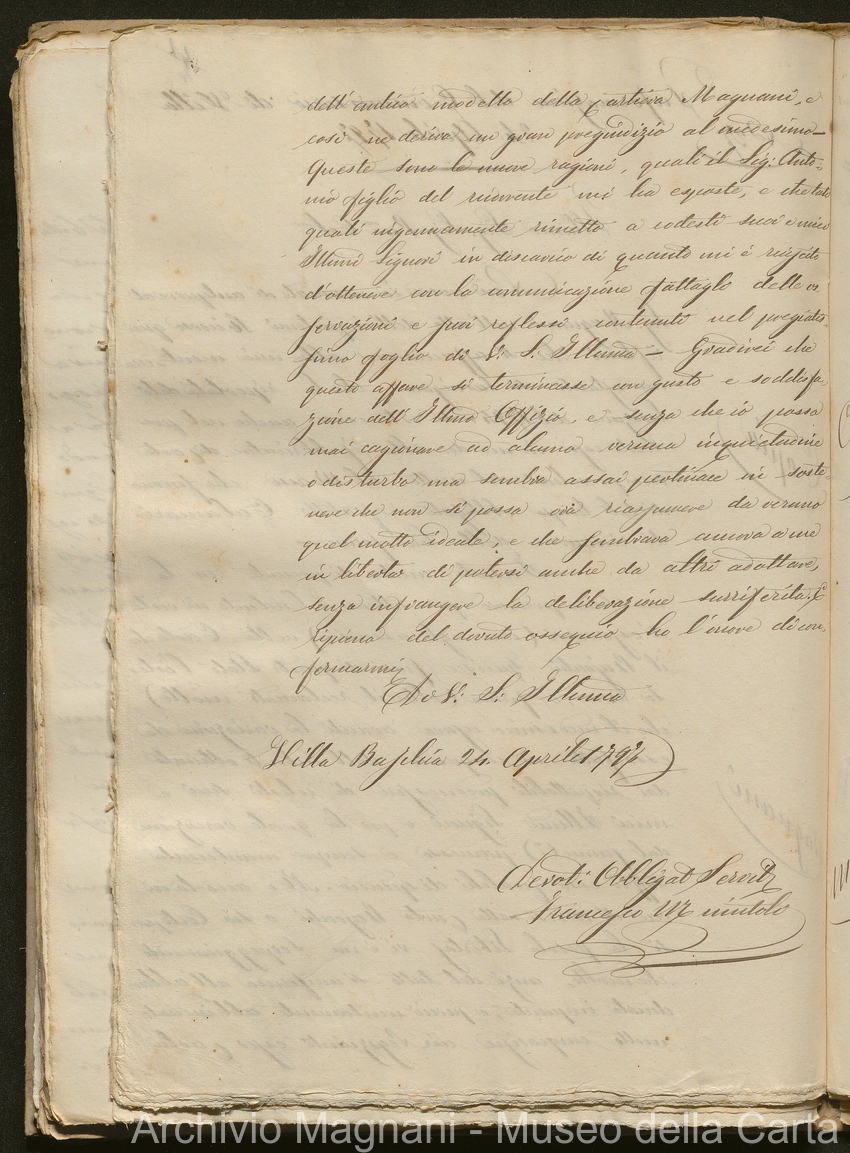 dell'antico modello della Cartiera Magnani, e
così ne deriva un gran pregiudizio al medesimo_
Queste sono le nuove ragioni, quali il Sig: Anto=
nio figlio del ricorrente mi ha esposte, e che tali
quali ingenuamente rimetto a codesti suoi e miei
Illmi Signori in discarico di quanto mi è riuscito
d'ottenere con la comunicazione fattagli delle os
servazioni e fari reflessi contenuti nel pregiatis=
simo foglio di V: S: Illma _ Gradirei che
questo affare si terminasse con gusto e soddisfa
zione dell'Illmo Offizio, e senza che io possa
mai cagionare ad alcuno veruna inquietudine
o disturbo ma sembra assai pertinace in soste=
nere che non si possa ora riassumere da veruno
quel motto ideale, e che sembrava ancora a me
in libertà di potersi anche da altri adottare,
senza infrangere la deliberazione surriferita. E
ripieno del dovuto ossequio ho l'onore di con,
fermarmi
Di V: S: Illma
Villa Basilica 24 Aprile 179
Devot: Obbligat Servit
Francesco Minutoli
Archivio Magnani - Museo della Carta